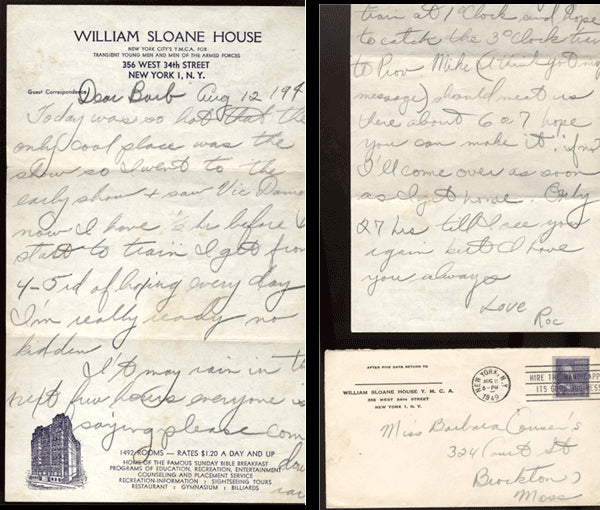 WILLIAM SLOANE HOUSE
NEW YORK CITY'S Y.M.C.A. FOR
TRANSIENT YOUNG MEN AND MEN OF THE ARMED FORCES
356 WEST 34th STREET
NEW YORK 1, N. Y.
Guest Correspondence
Dear Barb Aug 12 194
Today was so hot that the
only cool place was the
show so I went to the
early show + saw Vic Damo
now I have ½ hr before I
start to train I got from
4-5 rd of hoping every day
I'm really ready no
kidden
I't may rain in th
next few hours everyone is
saying please com
dow
rai
1492 ROOMS — RATES $1.20 A DAY AND UP
HOME OF THE FAMOUS SUNDAY BIBLE BREAKFAST
PROGRAMS OF EDUCATION, RECREATION, ENTERTAINMENT
COUNSELING AND PLACEMENT SERVICE
RECREATION-INFORMATION : SIGHTSEEING TOURS
RESTAURANT : GYMNASIUM : BILLIARDS
train at 1 o'Clock and hope
to catch the 3 o'Clock trai
to Prov. Mike (I think got my
message) should meet us
there about 6 or 7 hope
you can make it, if not
I'll come over as soon
as I get home. Only
27 hrs till I see you
again but I have
you always
Love
Roc
AFTER FIVE DAYS RETURN TO
WILLIAM SLOANE HOUSE Y. M. C. A.
356 WEST 34TH STREET
NEW YORK 1, N. Y.
NEW YORK, N.Y.
AUG 1
6-PM
1949
HIRE THE HANDICAPP
ITS GOOD BUSINESS
Miss Barbara Cousen's
324 Court St
Brockton
Mass